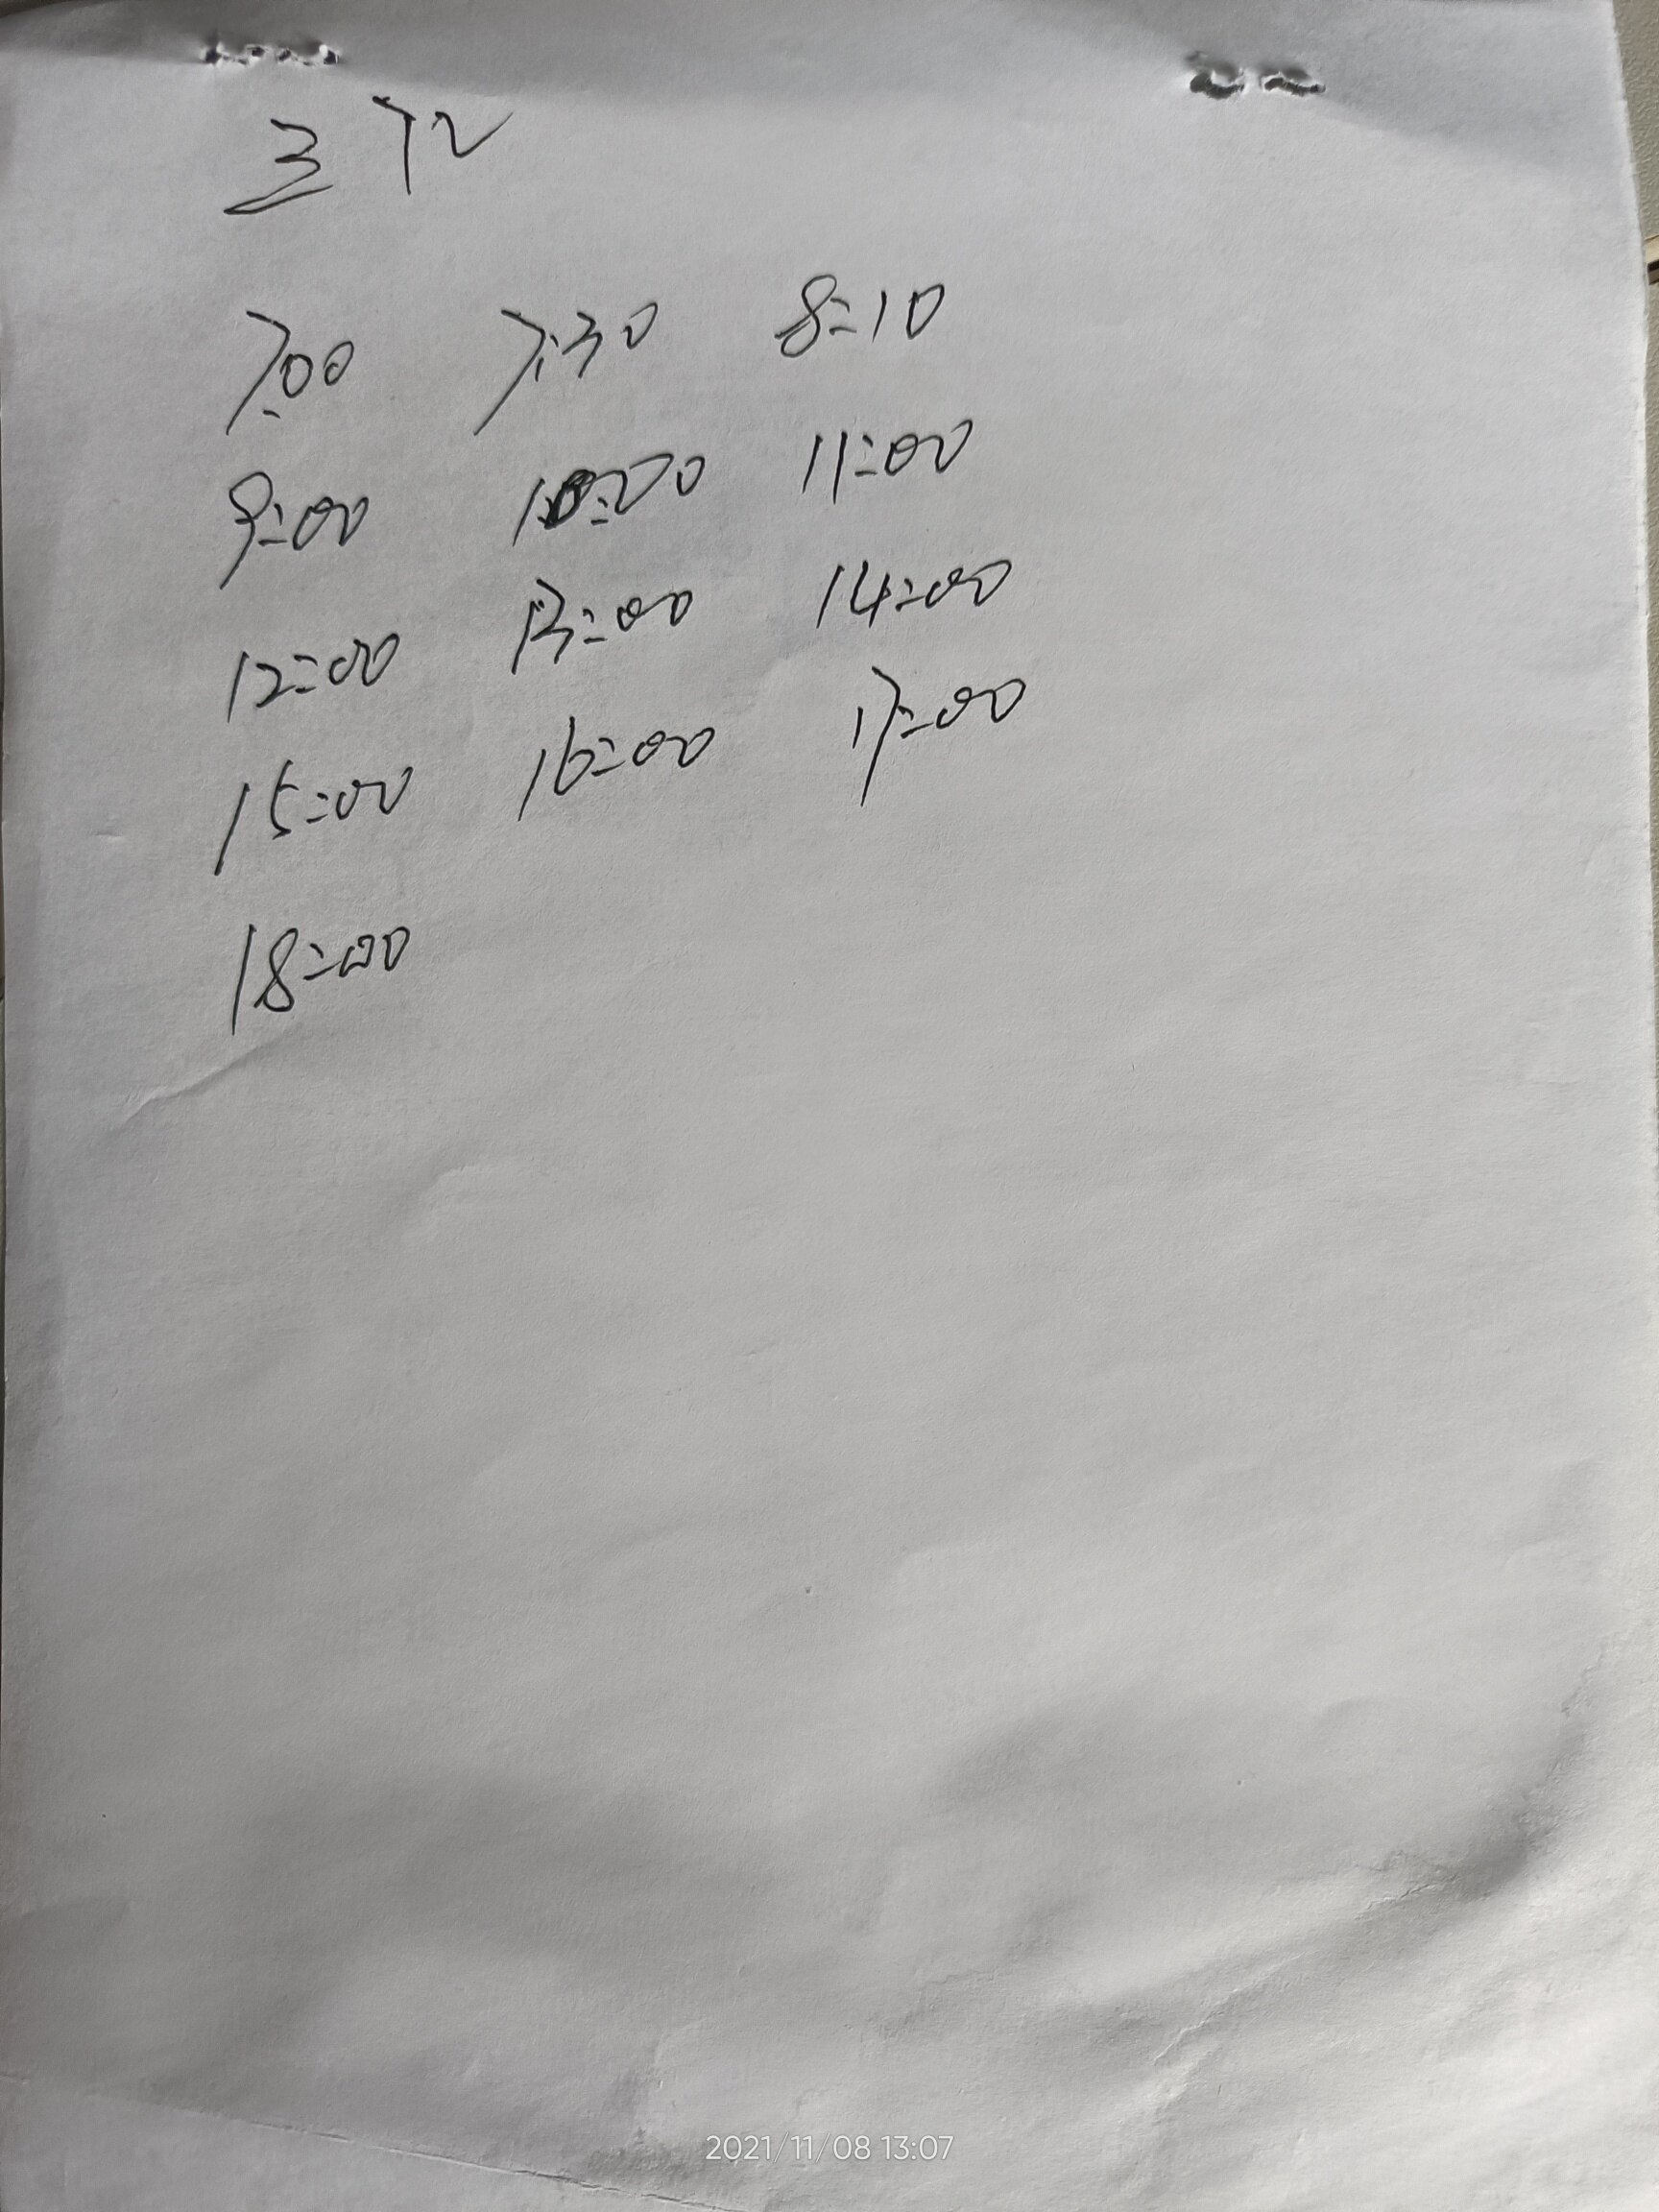 7:00 7:30 8:10
9:00 10:20 11:00
12:00 13:00 14:00
15:00 16:00 17:00
18:00
2021/11/08 13:07